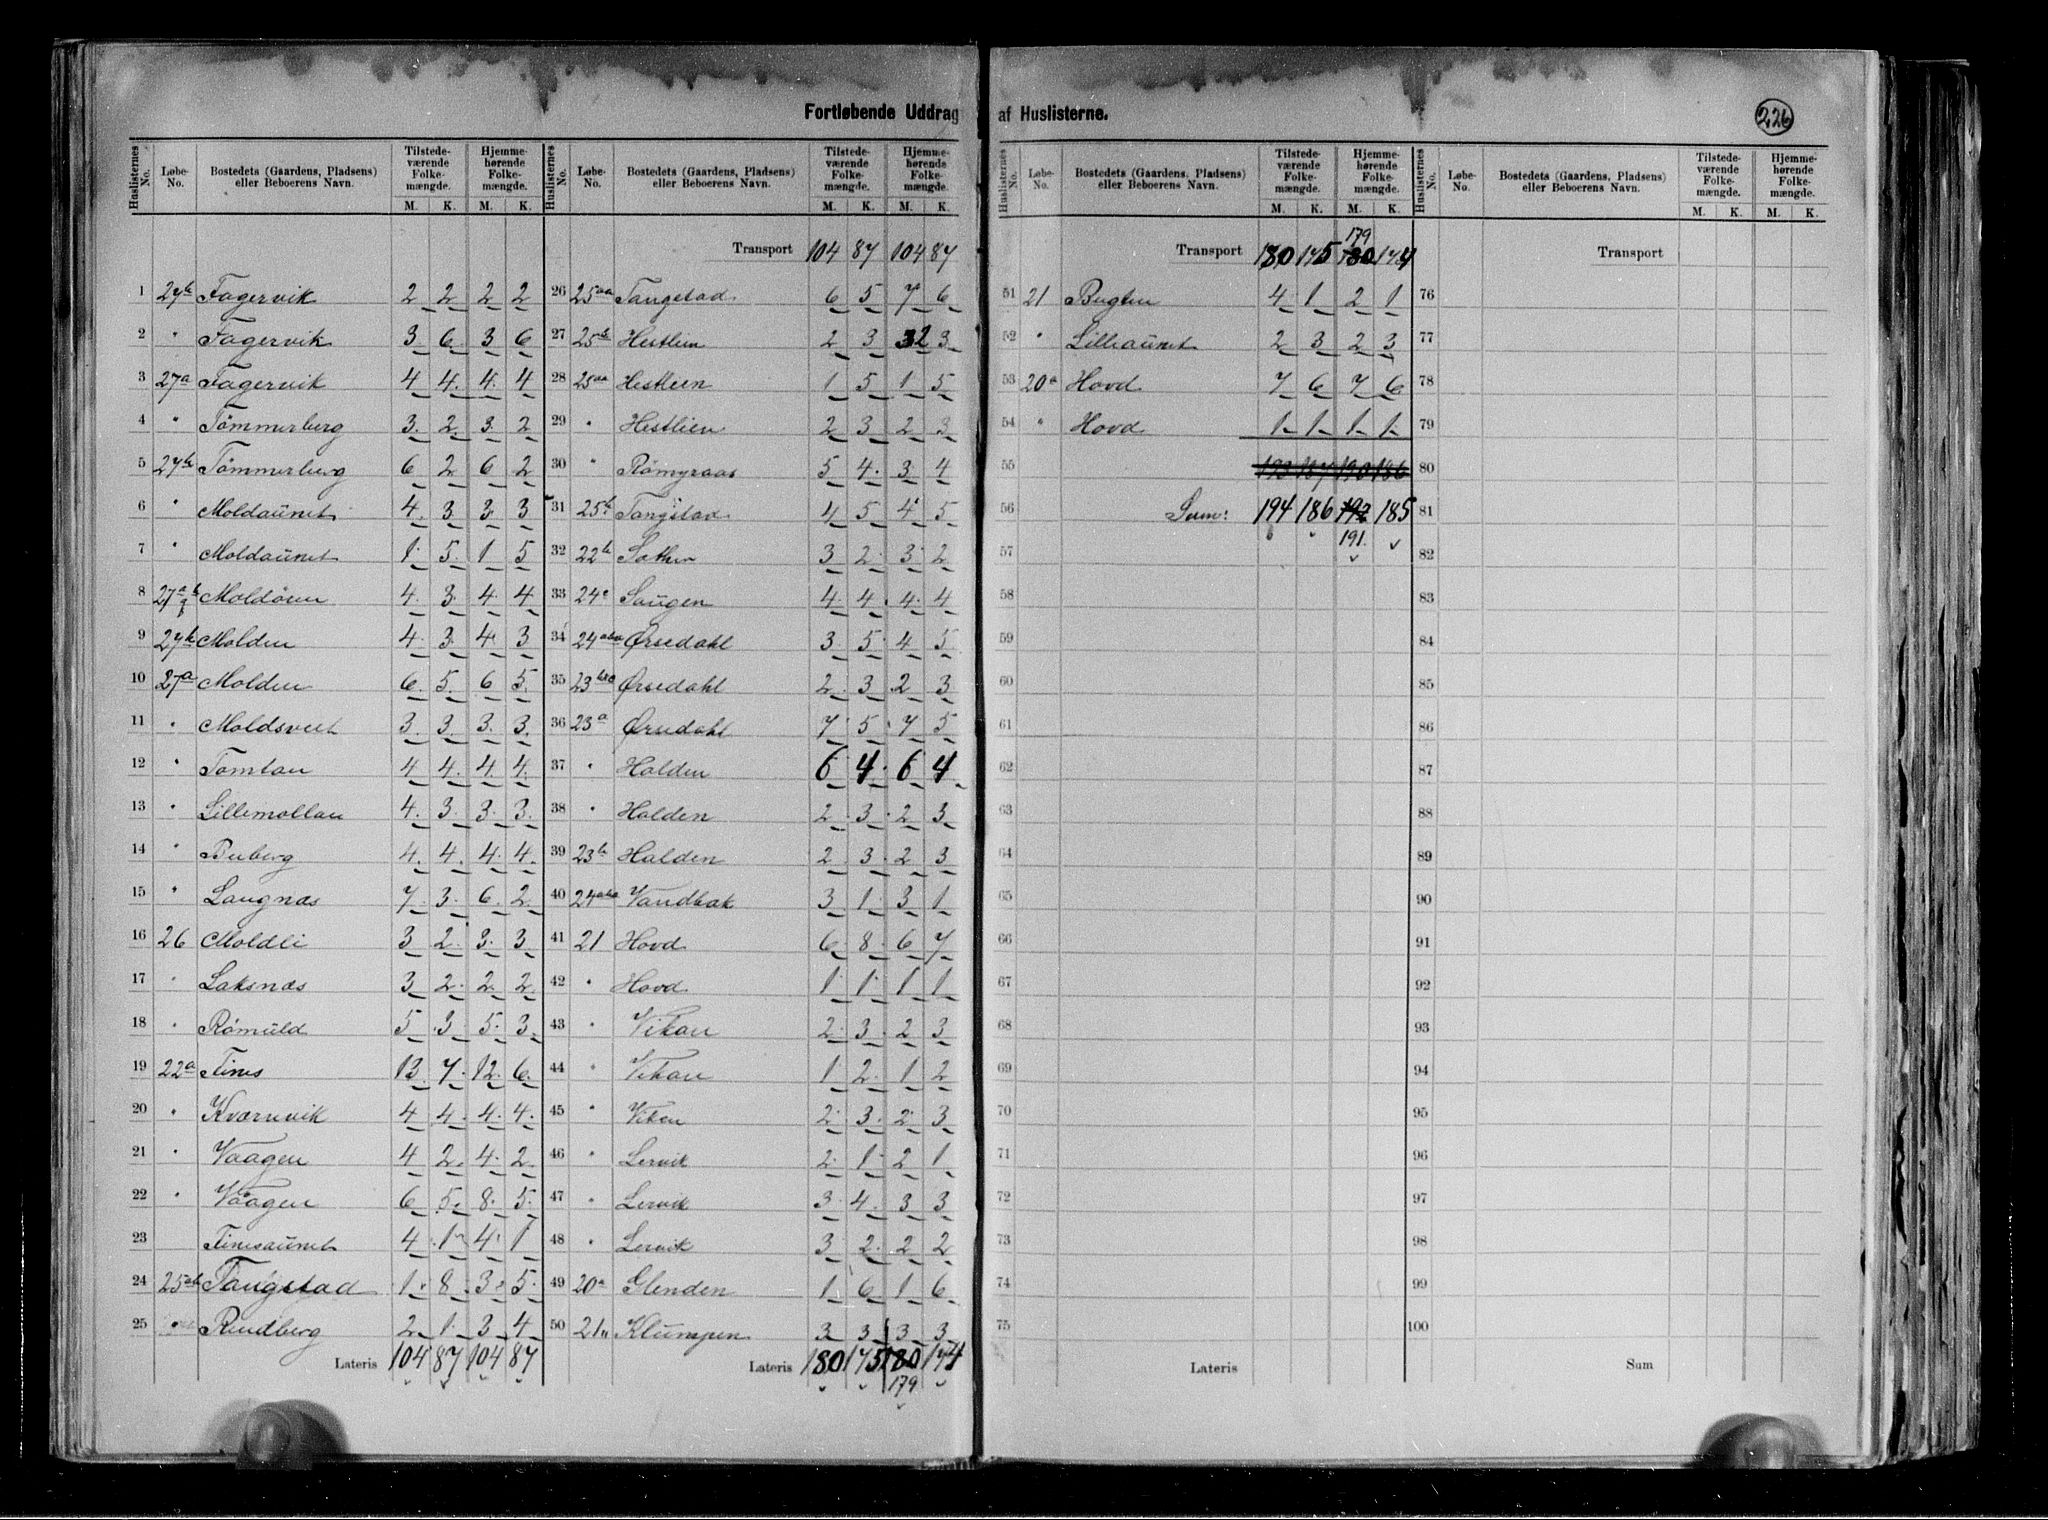 Fortløbende Uddrag af Huslisterne.
226
Huslisternes No. Løbe-No. Bostedets (Gaardens, Pladsens) eller Beboerens Navn. Tilstedeværende Folkemængde. M. K. Hjemmehørende Folkemængde. M. K.
1 27b Fagervik 2 2 2 2
2 " Fagervik 3 6 3 6
3 27a Fagervik 4 4 4 4
4 " Tömmerberg 3 2 3 2
5 27b Tömmerberg 6 2 6 2
6 " Moldaunet 4 3 3 3
7 " Moldaunet 1 5 1 5
8 27a b Moldören 4 3 4 4
9 27b Molden 4 3 4 3
10 27a Molden 6 5 6 5
11 " Moldsveet 3 3 3 3
12 " Tomtan 4 4 4 4
13 " Lillemollan 4 3 3 3
14 " Buberg 4 4 4 4
15 " Langnæs 7 3 6 2
16 26 Moldli 3 2 3 3
17 " Laksnæs 3 2 2 2
18 " Römuld 5 3 5 3
19 22a Tines 13 7 12 6
20 " Kværnvik 4 4 4 4
21 " Vaagen 4 2 4 2
22 " Vaagen 6 5 8 5
23 Tinesaunet 4 1 4 1
24 25ab Tangstad 1 8 3 5
25 " Rundberg 2 1 3 4
Lateris 104 87 104 87
Huslisternes No. Løbe-No. Bostedets (Gaardens, Pladsens) eller Beboerens Navn. Tilstedeværende Folkemængde. M. K. Hjemmehørende Folkemængde. M. K.
Transport 104 87 104 87
26 25aa Tangstad 6 5 7 6
27 25b Hestlien 2 3 2 3
28 25aa Hestlien 1 5 1 5
29 " Hestlien 2 3 2 3
30 " Römyraas 5 4 3 4
31 25b Tangstad 4 5 4 5
32 22b Sæther 3 2 3 2
33 24c Saugen 4 4 4 4
34 24aba Ørsedahl 3 5 4 5
35 23 Ørsedahl 2 3 2 3
36 23a Ørsedahl 7 5 7 5
37 " Halden 6 4 6 4
38 " Halden 2 3 2 3
39 23b Halden 2 3 2 3
40 24aba Vandbak 3 1 3 1
41 21 Hovd 6 8 6 7
42 " Hovd 1 1 1 1
43 " Vikan 2 3 2 3
44 " Vikan 1 2 1 2
45 " Viken 2 3 2 3
46 " Lervik 2 1 2 1
47 " Lervik 3 4 3 3
48 " Lervik 3 2 2 2
49 20a Glenden 1 6 1 6
50 21 Klumpen 3 3 3 3
Lateris 180 145 180 144
179
Huslisternes No. Løbe-No. Bostedets (Gaardens, Pladsens) eller Beboerens Navn. Tilstedeværende Folkemængde. M. K. Hjemmehørende Folkemængde. M. K.
179
Transport 180 175 180 174
51 21 Bugten 4 1 2 1
52 " Lilleaunet 2 3 2 3
53 20a Hovd 7 6 7 6
54 " Hovd 1 1 1 1
55 193 187 190 186
56 Sum: 194 186 192 185
57 191
58
59
60
61
62
63
64
65
66
67
68
69
70
71
72
73
74
75
Lateris
Huslisternes No. Løbe-No. Bostedets (Gaardens, Pladsens) eller Beboerens Navn. Tilstedeværende Folkemængde. M. K. Hjemmehørende Folkemængde. M. K.
Transport
76
77
78
79
80
81
82
83
84
85
86
87
88
89
90
91
92
93
94
95
96
97
98
99
100
Sum